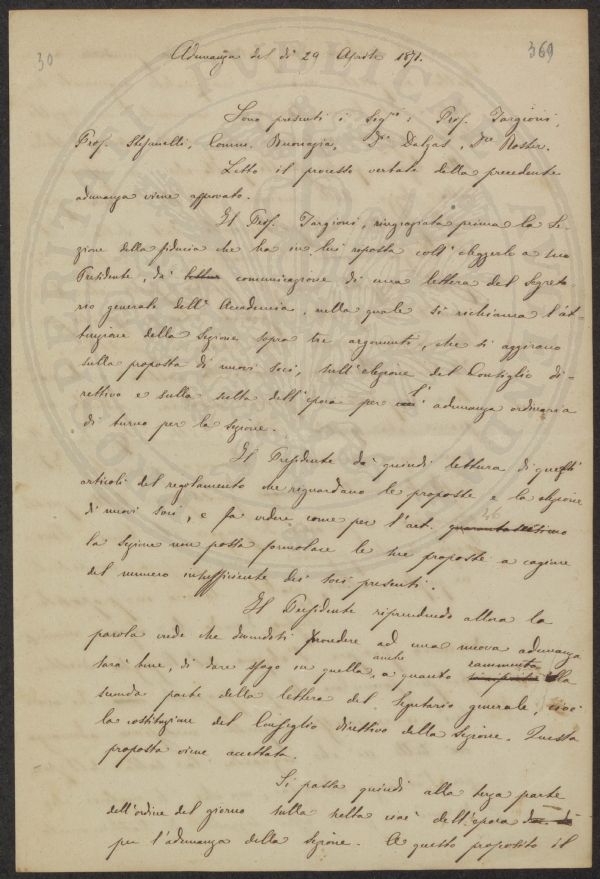 30
369
Adunanza del dì 29 Aprile 1871.
Sono presenti i Sigri: Prof. Targioni,
Prof. Stefanelli, Comm. Buonagia, Dre Dalgas, Dre Roster.
Letto il processo verbale della precedente
adunanza viene approvato.
Il Prof. Targioni, ringraziata prima la Se-
zione della fiducia che ha in lui risposta coll' eleggerlo a suo
Presidente, dà lettura comunicazione di una lettera del Segreta-
rio generale dell' Accademia, nella quale si richiama l'at-
tenzione della Sezione sopra tre argomenti, che si aggirano
sulla proposta di nuovi soci, sull' elezione del Consiglio di-
rettivo e sulla scelta dell' epoca per l' adunanza ordinaria
di turno per la sezione.
Il Presidente dà quindi lettura di questi
articoli del regolamento che riguardano le proposte e la elezione
di nuovi soci, e fa vedere come per l'art. quarantasettimo 36
la sezione non possa formolare le sue proposte a cagione
del numero insufficiente dei soci presenti.
Il Presidente riprendendo allora la
parola crede che dovendosi procedere ad una nuova adunanza
sarà bene, di dare sfogo in quella anche, a quanto rammenta la
seconda parte della lettera del Segretario generale, cioè
la costituzione del Consiglio direttivo della Sezione. Questa
proposta viene accettata.
Si passa quindi alla terza parte
dell' ordine del giorno sulla scelta cioè dell' epoca
per l' adunanza della Sezione. A questo proposito il